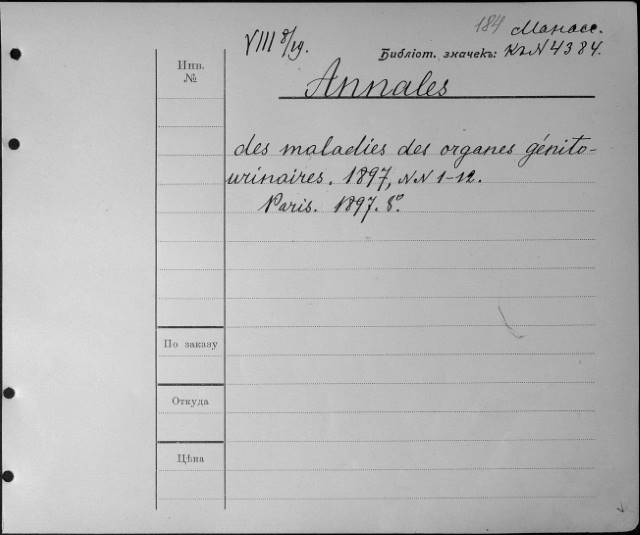 184 Манасс.
VIII 8/19.
Библіот. значекъ: К 2 N 4384.
Инв.
№
Annales
des maladies des organes génito-
urinaires. 1897, NN 1-12.
Paris. 1897. 8º.
По заказу
Откуда
Цѣна